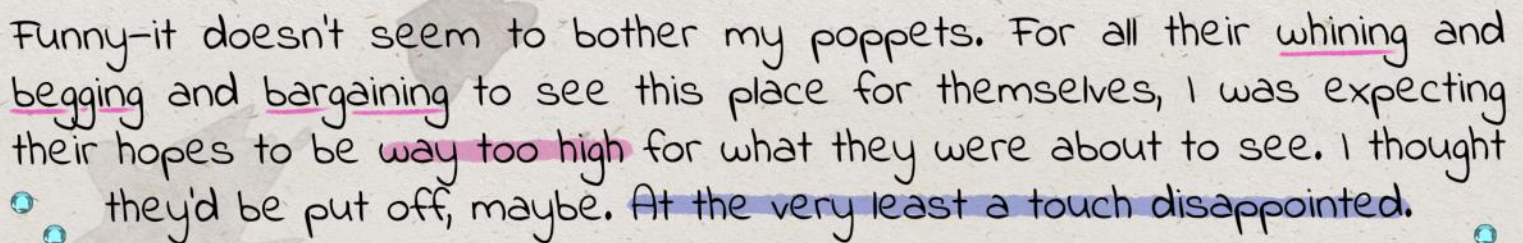 Funny-it doesn't seem to bother my poppets. For all their whining and
begging and bargaining to see this place for themselves, I was expecting
their hopes to be way too high for what they were about to see. I thought
they'd be put off, maybe. At the very least a touch disappointed.